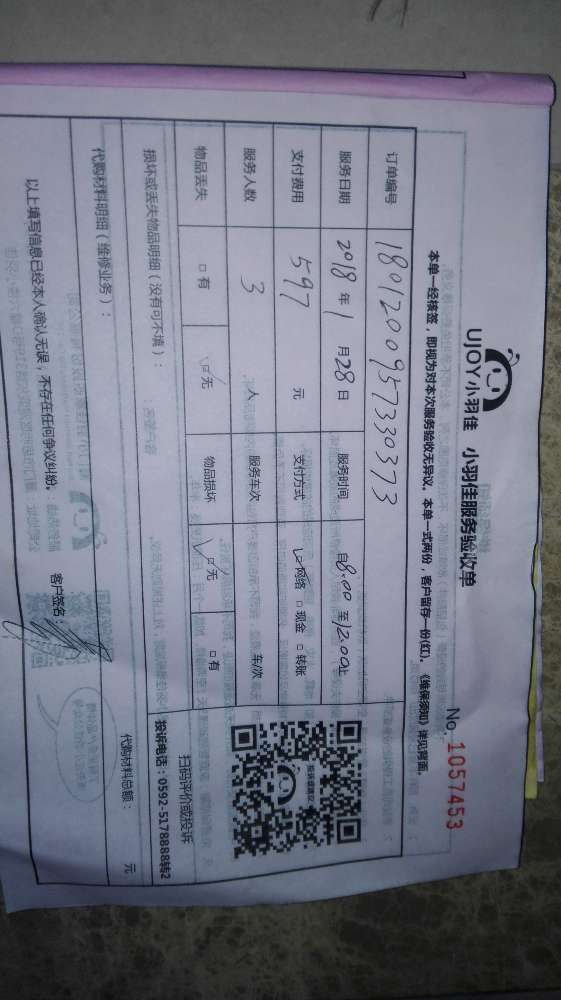 UJOY小羽佳 小羽佳服务验收单
No 1057453
本单一经核签，即视为对本次服务验收无异议。本单一式两份，客户留存一份(红)。《维保须知》详见背面。
订单编号 1801200957330373
服务日期 2018年1月28日 服务时间 自8:00至12:00止
支付费用 597 元 支付方式 ☑网络 □现金 □转账
服务人数 3 人 服务车次 车/次
物品丢失 □有 ☑无 物品损坏 ☑无 □有
投诉或建议
扫码评价或投诉
投诉电话：0592-5178888转2
损坏或丢失物品明细（没有可不填）：
代购材料明细（维修业务）：
代购材料总额： 元
以上填写信息已经本人确认无误，不存在任何争议纠纷。 客户签名：